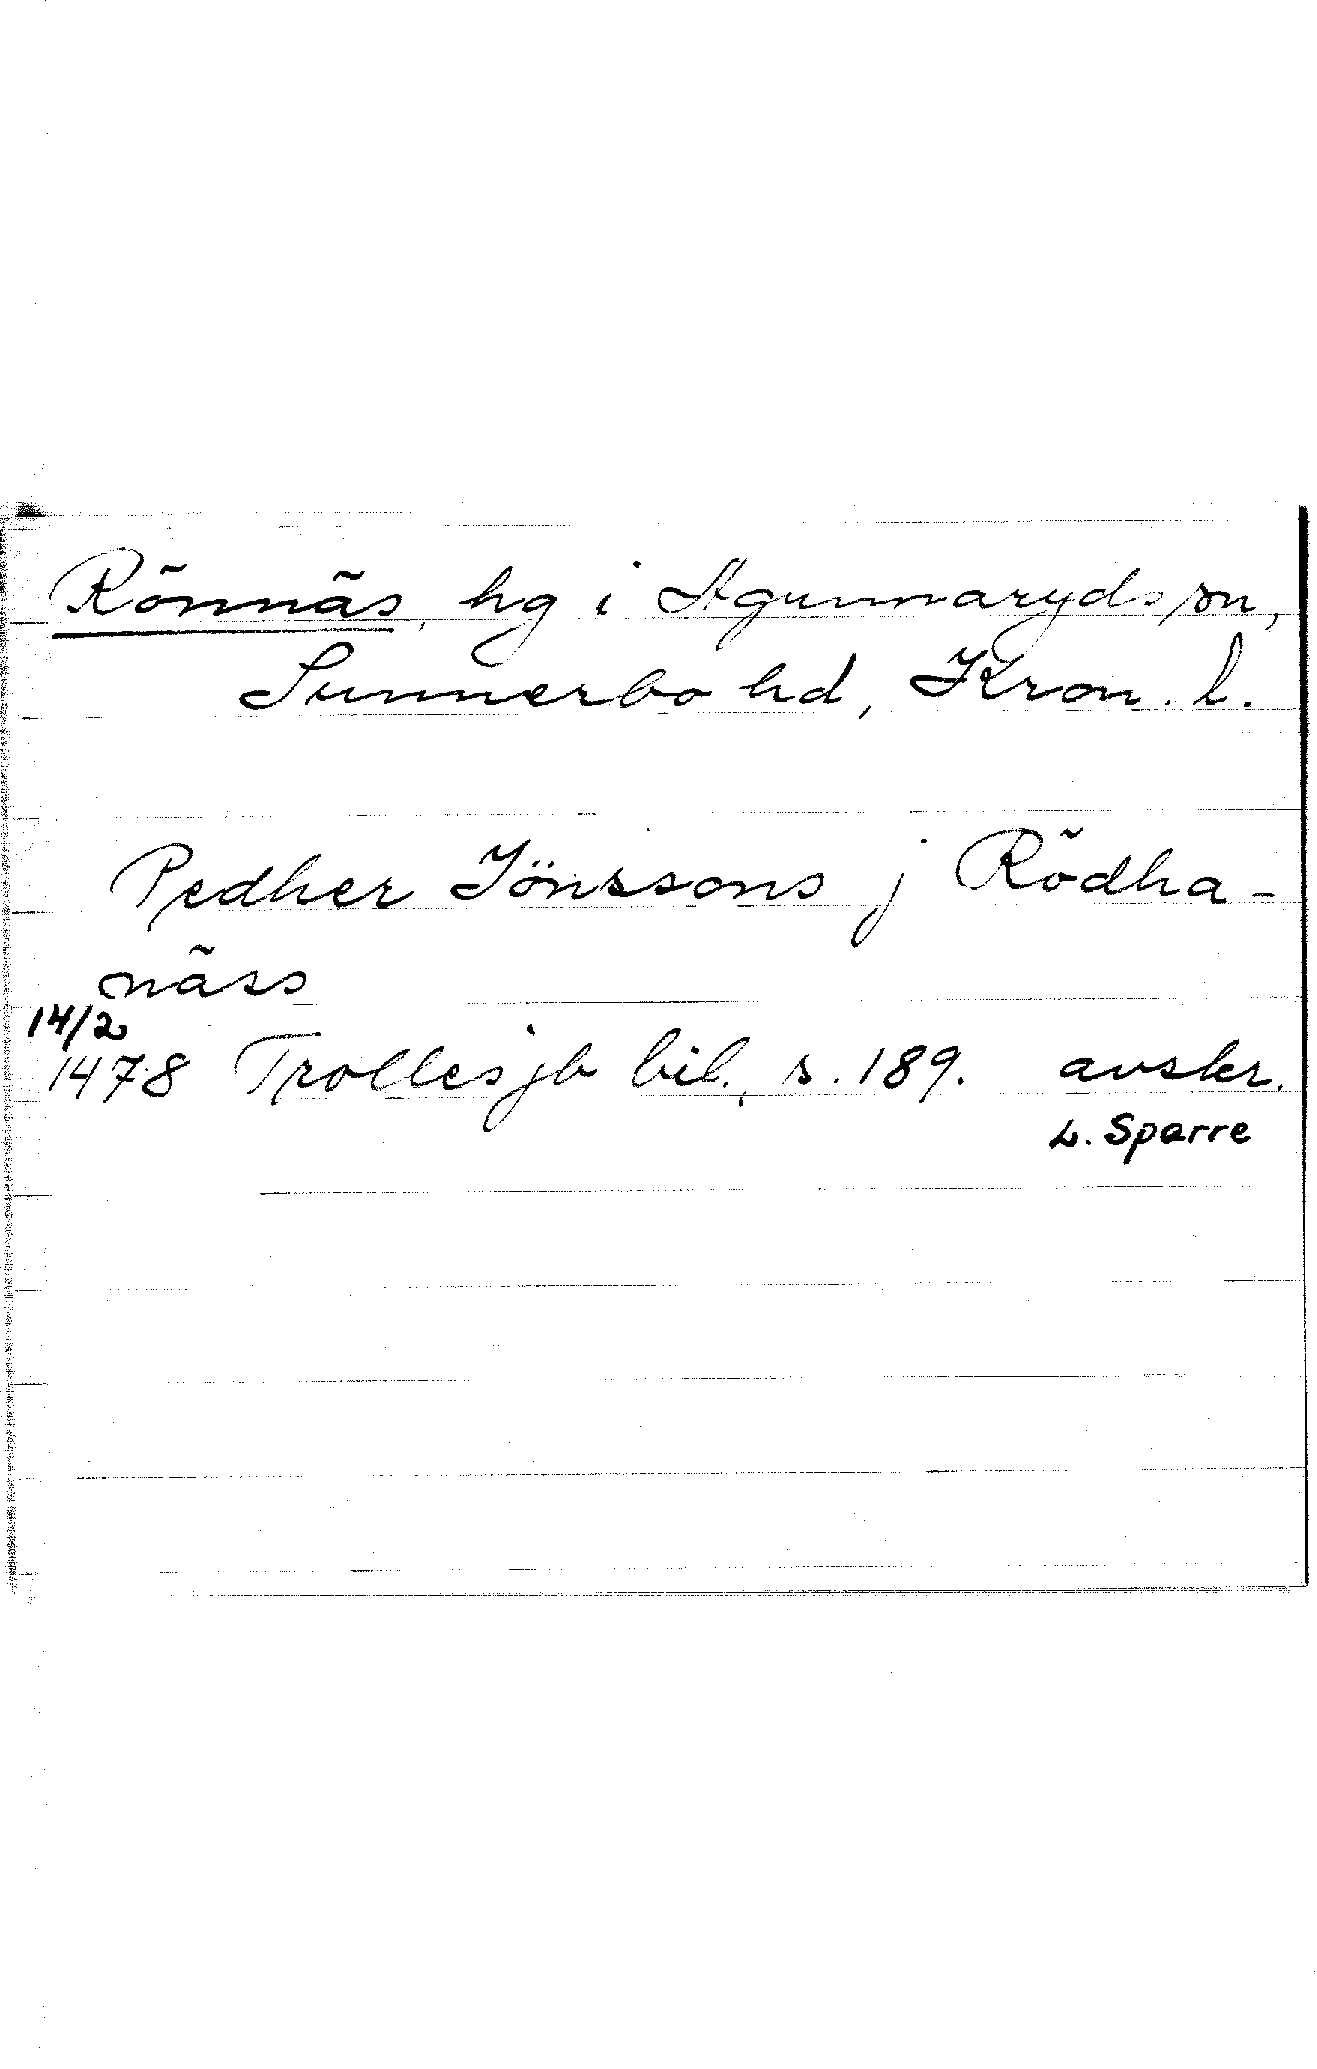 Rönnäs, hg i Agunnaryds sn,
Sunnerbo hd, Kron. l.
Pedher Jönssons j Rödha-
näss
14/2
1478 Trolles jb bil., s. 189. avskr.
L. Sparre